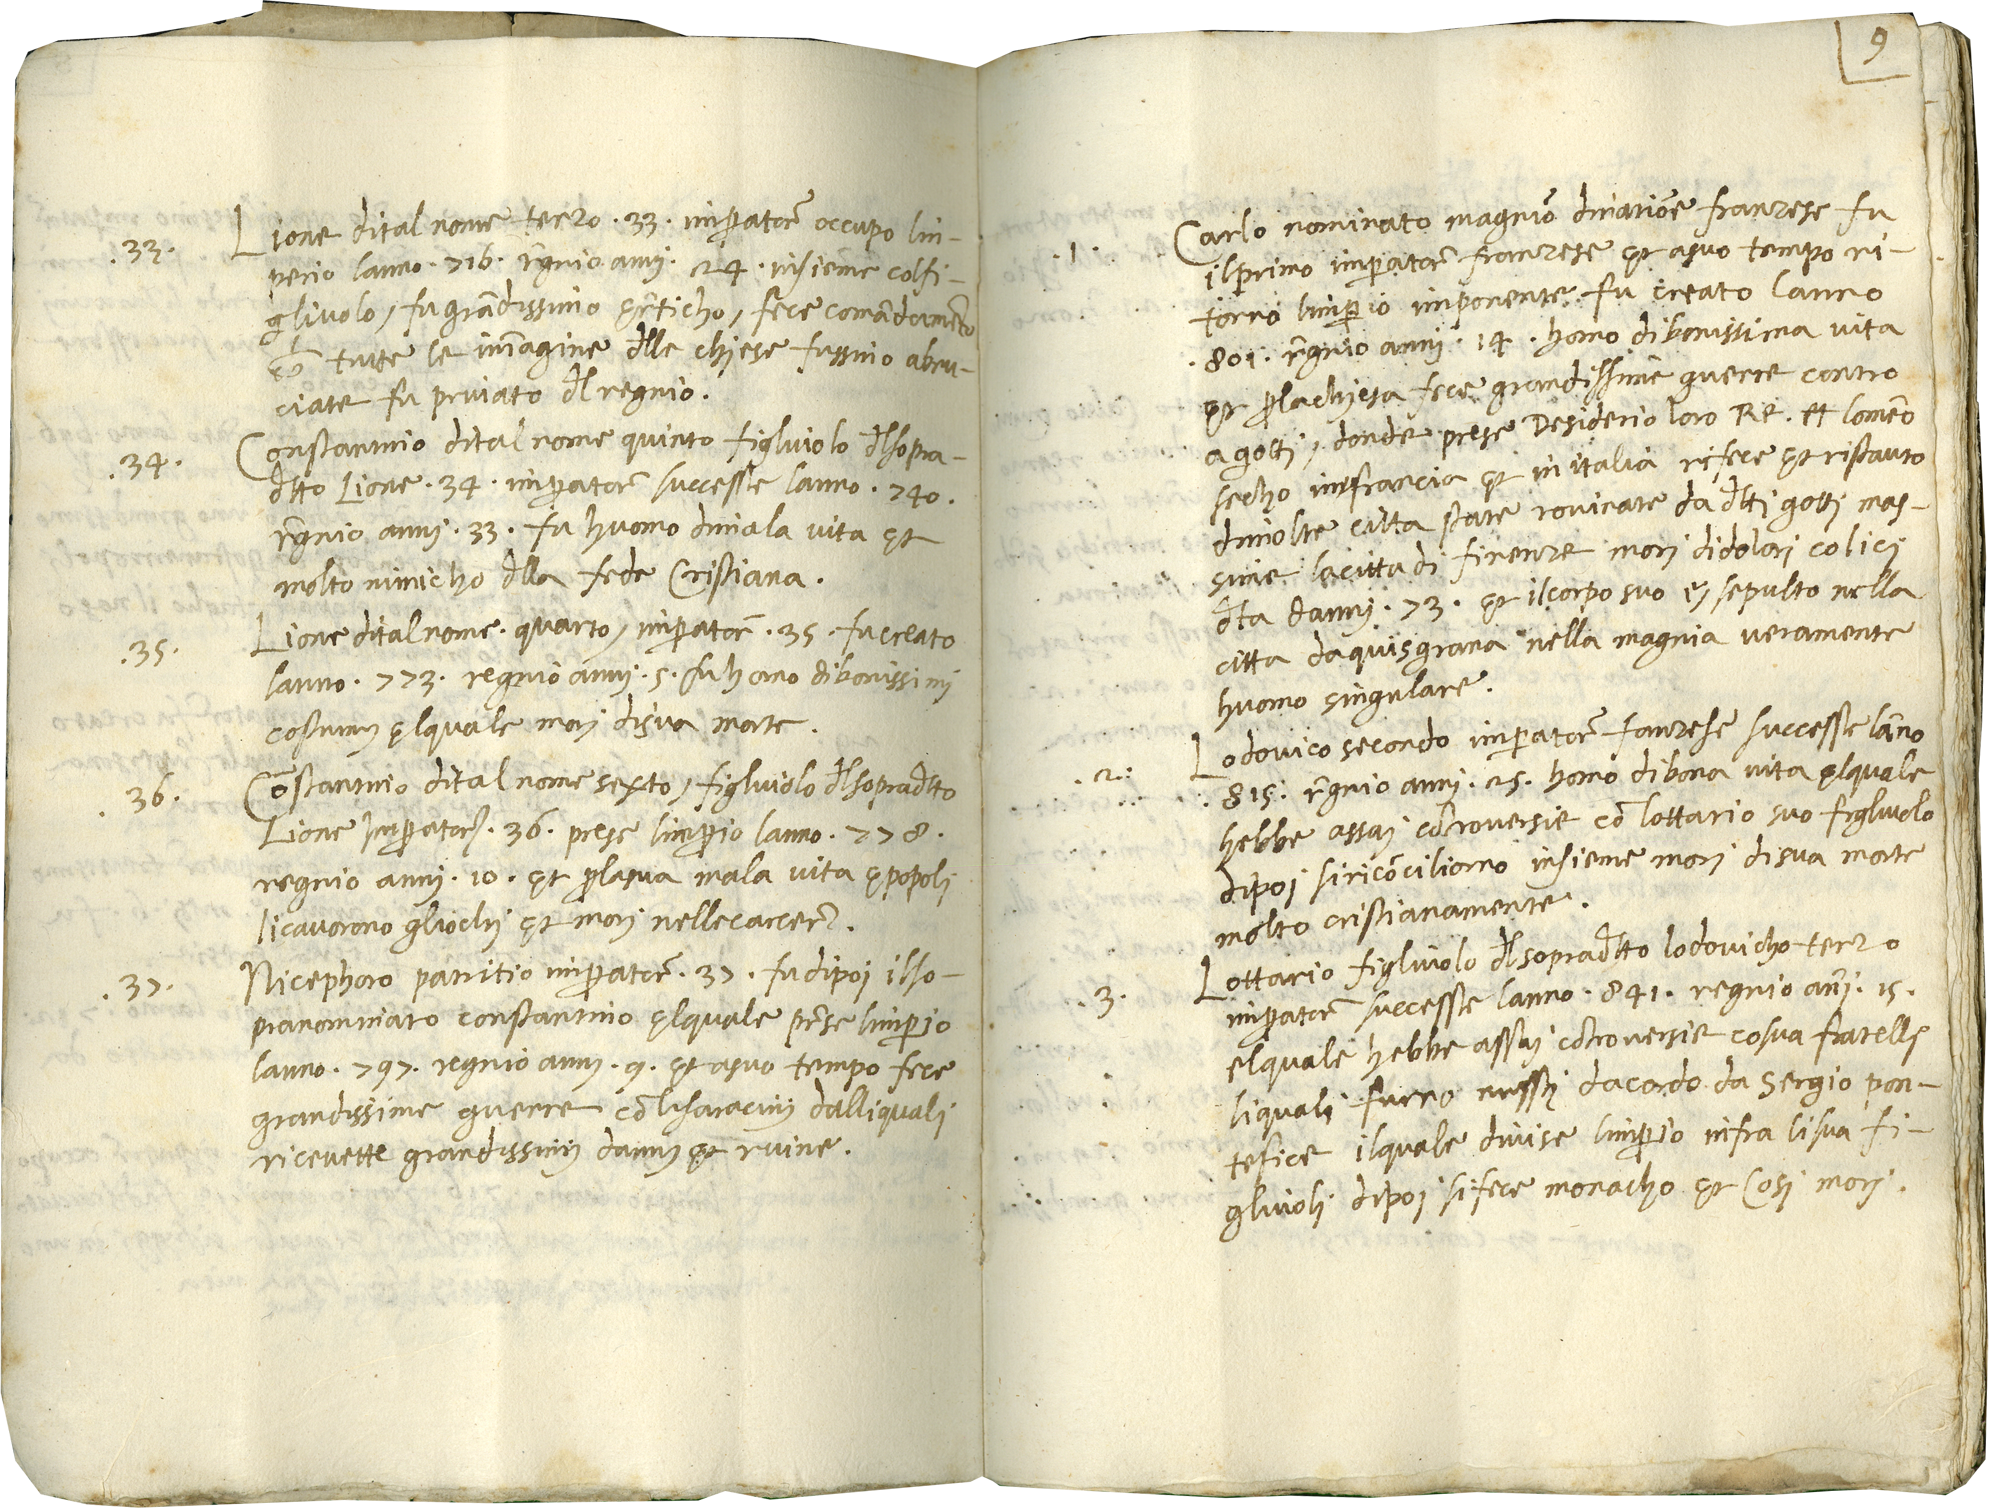 .33. Lione dital nome terzo .33. imꝑatore͂ occupo lin-
perio lanno .716. r͂gnio annj .24. insieme colfi-
gliuolo / fu gra͂dissimo er͂ticho / fece coma͂dame͂to
ch͂ tutte le im͂agine d͂lle chiese fussino abru-
ciate fu priuato d͂l regnio.
.34. Constantino dital nome quinto figluiolo d͂lsopra-
d͂tto Lione .34. imꝑator͂ successe lanno .740.
r͂gnio annj .33. fu huomo dimala vita et
molto nimicho d͂lla fede Cristiana.
.35. Lione dital nome. quarto / imꝑator͂ .35. fu creato
lanno .773. regnio annj .5. fu homo dibonissimj
costumj elquale morj disua morte.
.36. Co͂stantino dital nome sexto / figluiolo d͂lsoprad͂tto
Lione Imꝑator͂ .36. prese limꝑio lanno .778.
regnio annj .10. et ꝑlasua mala vita epopolj
licauorono gliochj et morj nellecarcer͂.
.37. Nicephoro patritio imꝑator͂ .37. fu dipoj ilso-
pranominato constantino elquale pr͂se limꝑio
lanno .797. regnio annj .9. et asuo tempo fece
grandissime guerre co͂ lisaracinj dalliqualj
riceuette grandissimj dannj et ruine.
9
.1. Carlo nominato magnio͂ dinatio͂e franzese fu
ilprimo imꝑator͂ franzese et asuo tempo ri-
torno limꝑio imponente fu creato lanno
.801. r͂gnio annj .14. homo dibonissima vita
et ꝑlachiesa fece grandissime guerre contro
agottj / donde prese Desiderio loro Re. et lome͂o
secho infrancia et in italia rifece et ristauro
dimolte citta state rouinate da d͂tti gottj mas-
sime lacitta di firenze morj didolorj colicj
d͂ta dannj .73. et ilcorpo suo ej sepulto nella
citta daquisgrana nella magnia veramente
huomo singulare.
.2. Lodouico secondo imꝑator͂ fanzese successe la͂no
.815. r͂gnio annj .25. homo dibona vita elquale
hebbe assaj co͂trouersie co͂ lottario suo figluolo
dipoj sirico͂ciliorno insieme morj disua morte
molto cristianamente.
.3. Lottario figliuolo d͂lsoprad͂tto lodouicho terzo
imꝑator͂ successe lanno .841. regnio an͂j .15.
elquale hebbe assaj co͂trouersie cosua fratellj
liqualj furno messj dacordo da Sergio pon-
tefice ilquale diuise limꝑio infra lisua fi-
gliuolj dipoj sifece monacho et Cosi morj.